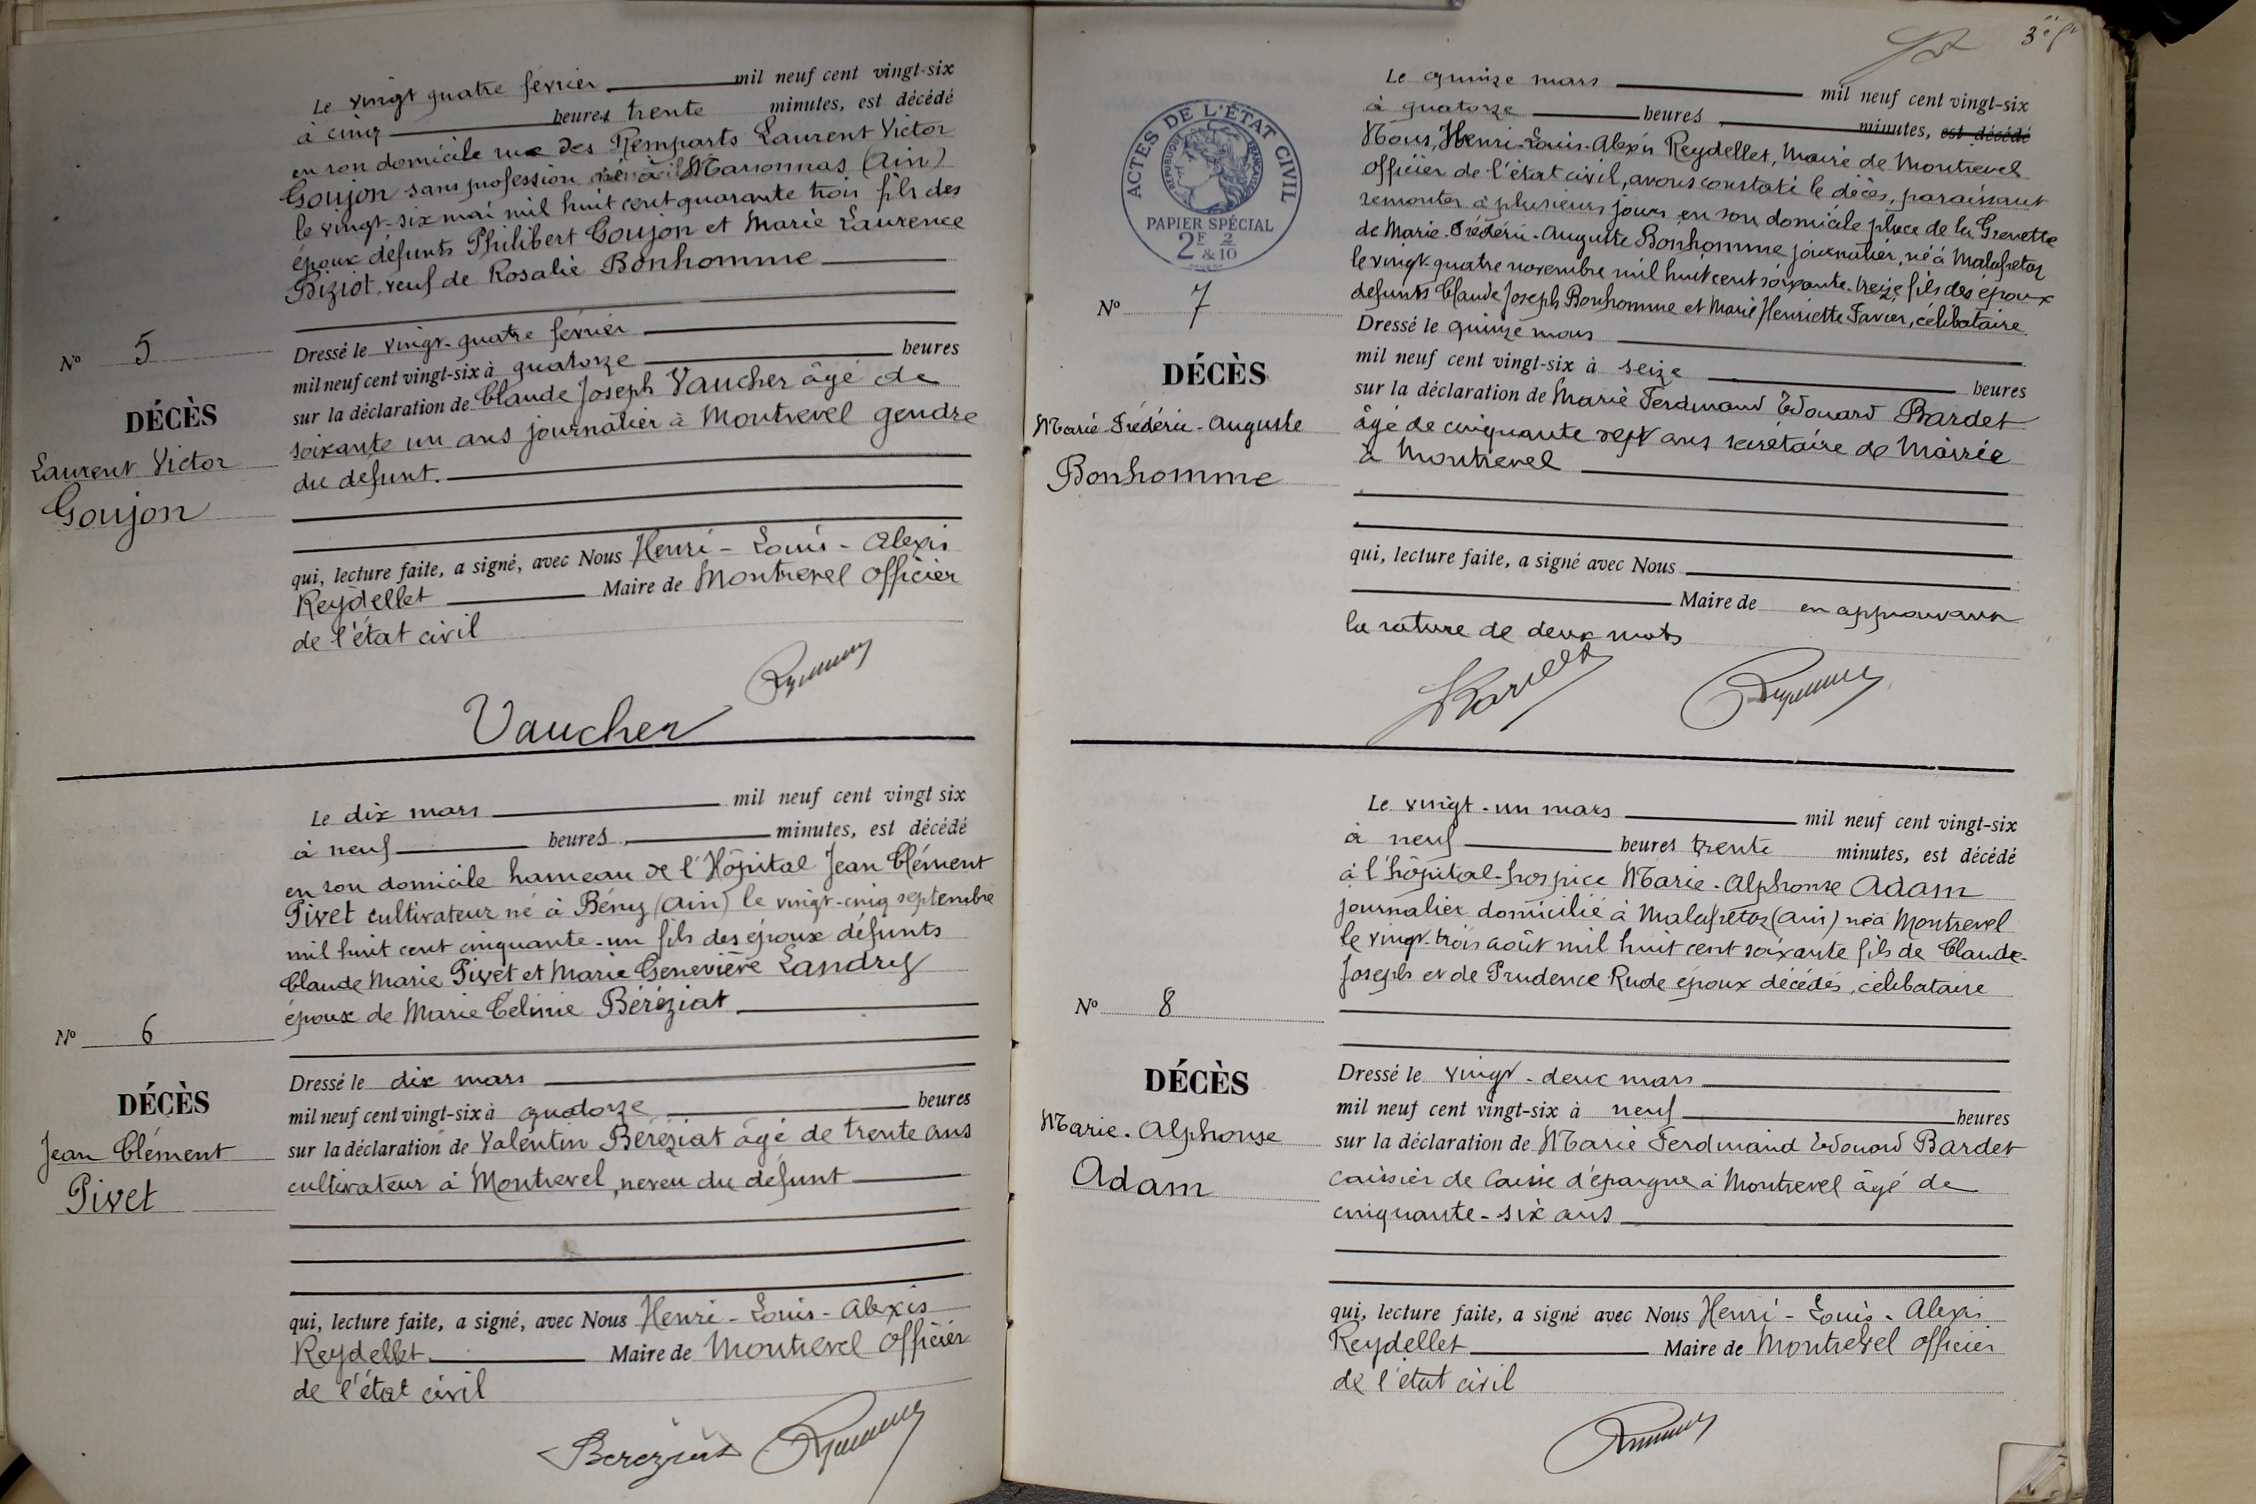 Le vingt quatre février mil neuf cent vingt-six
à cinq heures trente minutes, est décédé
en son domicile rue des Remparts Laurent Victor
Goujon sans profession né à Marsonnas (Ain)
le vingt-six mai mil huit cent quarante trois fils des
époux défunts Philibert Goujon et Marie Laurence
Biziot, veuf de Rosalie Bonhomme
Nº 5
DÉCÈS
Laurent Victor
Goujon
Dressé le vingt-quatre février
mil neuf cent vingt-six à quatorze heures
sur la déclaration de Claude Joseph Vaucher âgé de
soixante un ans journalier à Montrevel gendre
du défunt.
qui, lecture faite, a signé, avec Nous Henri-Louis-Alexis
Reydellet Maire de Montrevel officier
de l'état civil
Vaucher
Le dix mars mil neuf cent vingt six
à neuf heures minutes, est décédé
en son domicile hameau de l'Hôpital Jean Clément
Pivet cultivateur né à Bény (Ain) le vingt-cinq septembre
mil huit cent cinquante-un fils des époux défunts
Claude Marie Pivet et Marie Geneviève Landry
époux de Marie Célinie Béréziat
Nº 6
DÉCÈS
Jean Clément
Pivet
Dressé le dix mars
mil neuf cent vingt-six à quatorze heures
sur la déclaration de Valentin Béréziat âgé de trente ans
cultivateur à Montrevel, neveu du défunt
qui, lecture faite, a signé, avec Nous Henri-Louis-Alexis
Reydellet Maire de Montrevel officier
de l'état civil
Bereziat
Le quinze mars mil neuf cent vingt-six
à quatorze heures minutes, est décédé
Nous, Henri-Louis-Alexis Reydellet, Maire de Montrevel
officier de l'état civil, avons constaté le décès, paraissant
remonter à plusieurs jours en son domicile place de la Grenette
de Marie-Frédéric-Auguste Bonhomme journalier, né à Malafretaz
le vingt-quatre novembre mil huit cent soixante-treize fils des époux
défunts Claude Joseph Bonhomme et Marie Henriette Favier, célibataire
ACTES DE L'ÉTAT CIVIL
RÉPUBLIQUE FRANÇAISE
PAPIER SPÉCIAL
2F & 2/10
Nº 7
DÉCÈS
Marie-Frédéric-Auguste
Bonhomme
Dressé le quinze mars
mil neuf cent vingt-six à seize heures
sur la déclaration de Marie Ferdinand Edouard Bardet
âgé de cinquante sept ans secrétaire de Mairie
à Montrevel
qui, lecture faite, a signé avec Nous
Maire de en approuvant
la rature de deux mots
Bardet
Le vingt-un mars mil neuf cent vingt-six
à neuf heures trente minutes, est décédé
à l'hôpital-hospice Marie-Alphonse Adam
journalier domicilié à Malafretaz (Ain) né à Montrevel
le vingt-trois août mil huit cent soixante fils de Claude-
Joseph et de Prudence Rude époux décédés, célibataire
Nº 8
DÉCÈS
Marie-Alphonse
Adam
Dressé le vingt-deux mars
mil neuf cent vingt-six à neuf heures
sur la déclaration de Marie Ferdinand Edouard Bardet
caissier de Caisse d'épargne à Montrevel âgé de
cinquante-six ans
qui, lecture faite, a signé avec Nous Henri-Louis-Alexis
Reydellet Maire de Montrevel officier
de l'état civil